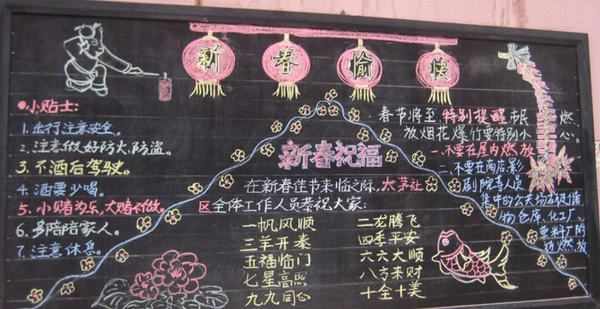 新春愉快
小贴士:
1.出行注意安全。
2.注意做好防火、防盗。
3.不酒后驾驶。
4.酒要少喝。
5.小赌为乐,大赌不做。
6.多陪陪家人。
7.注意休息。
新春祝福
在新春佳节来临之际,太茅社
区全体工作人员恭祝大家:
一帆风顺 二龙腾飞
三羊开泰 四季平安
五福临门 六六大顺
七星高照 八方来财
九九同心 十全十美
春节将至特别提醒市民 燃
放烟花爆竹要特别小 心。
一、不要在屋内燃放
二、不要在商店、影
剧院等人员
集中的公共场所
物仓库、化工厂、
燃放